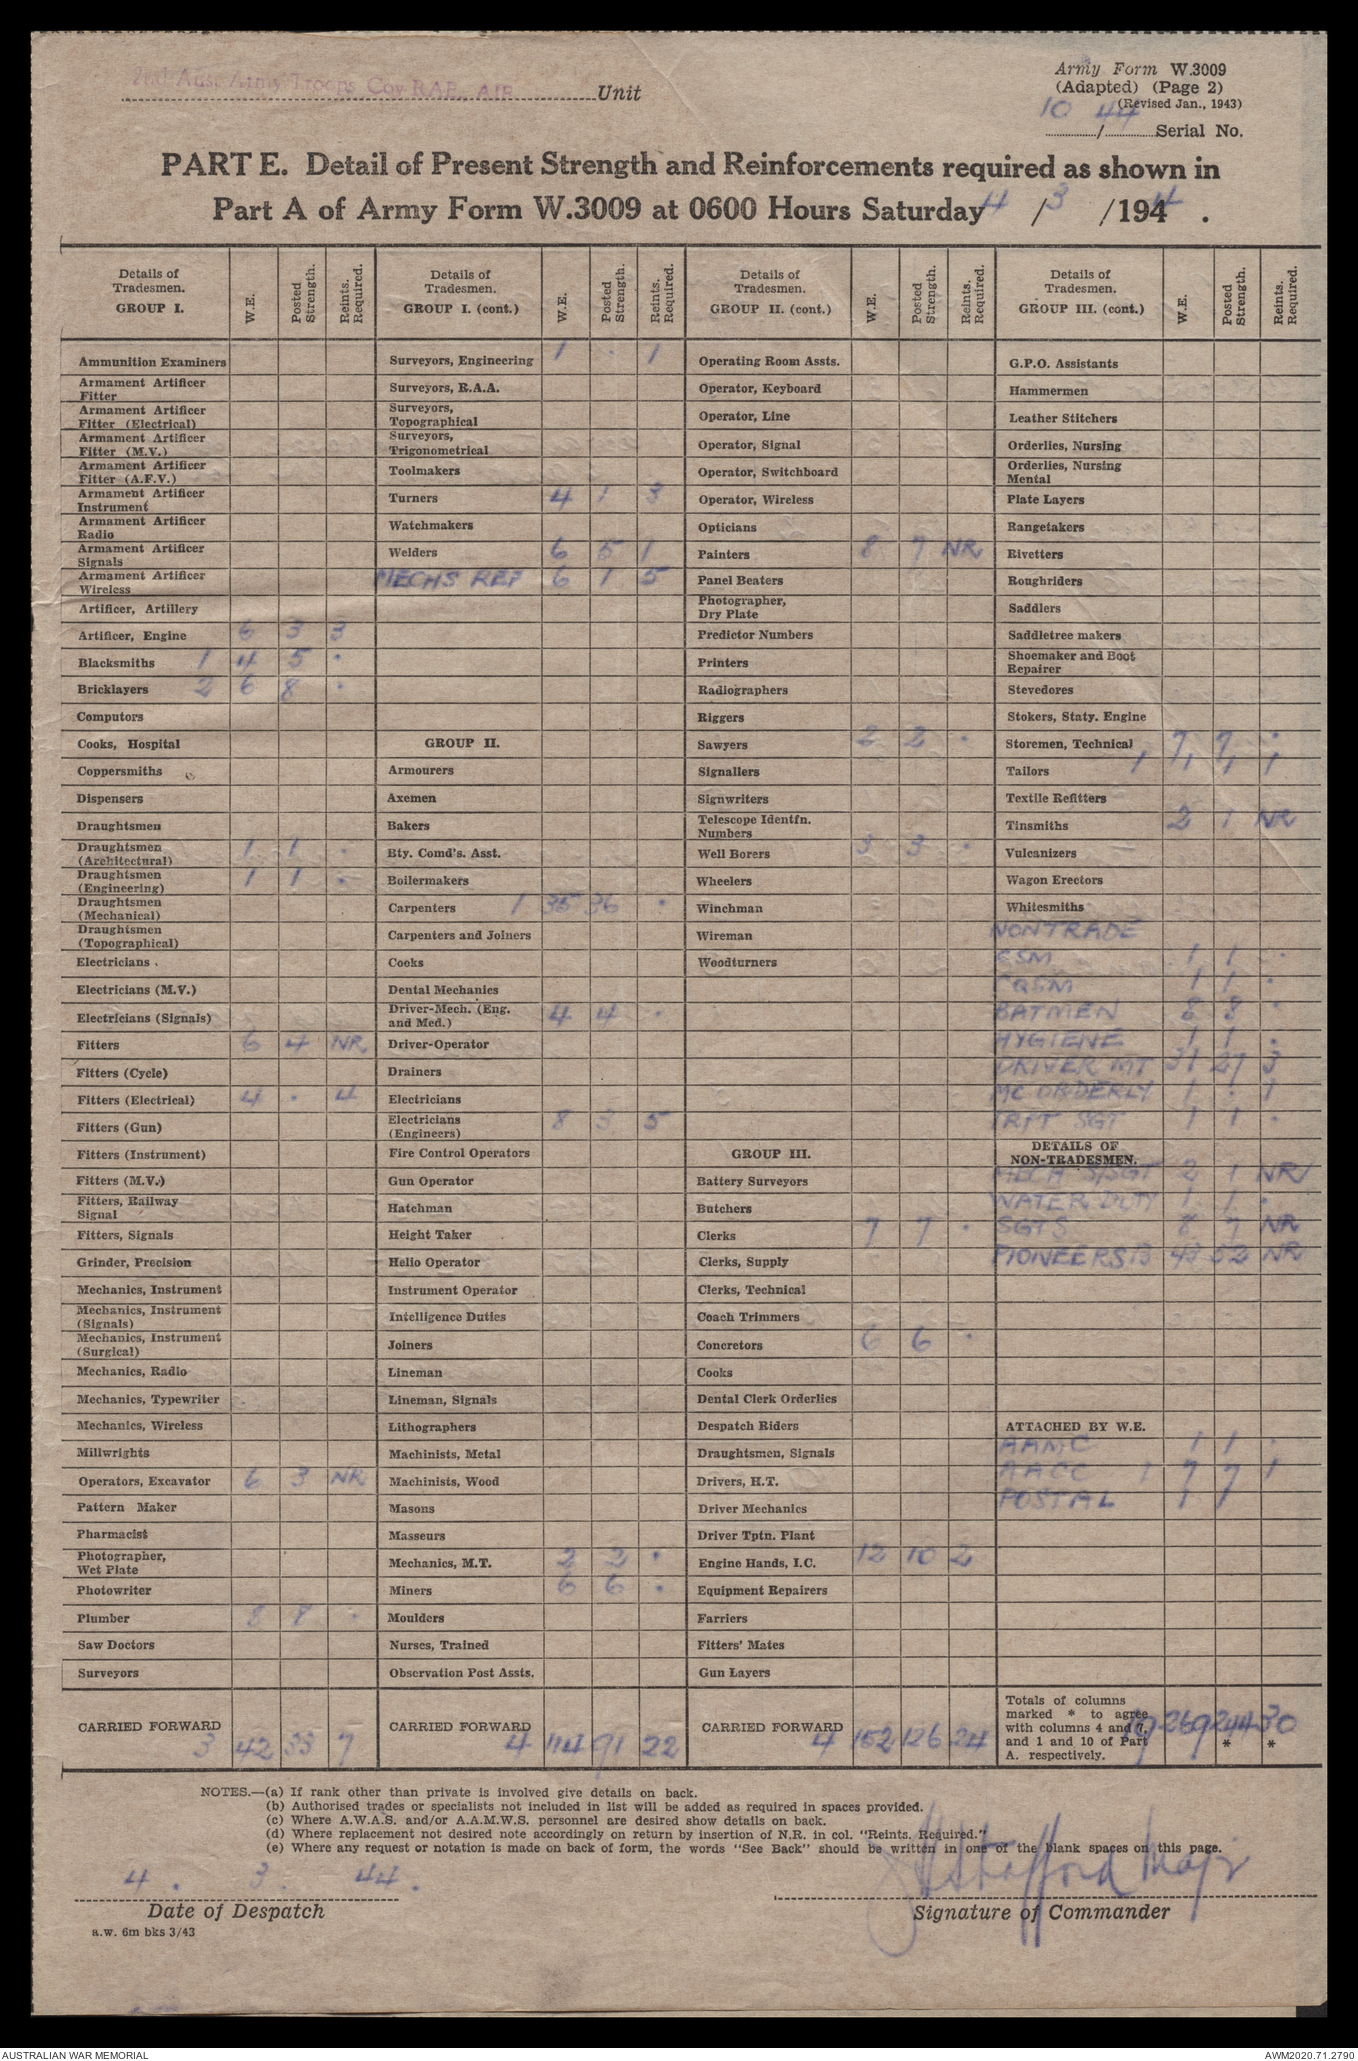 2nd Aust Army Troops Coy RAE. AIF Unit
Army Form W.3009
(Adapted) (Page 2)
(Revised Jan., 1943)
10 / 44 Serial No.
PART E. Detail of Present Strength and Reinforcements required as shown in
Part A of Army Form W.3009 at 0600 Hours Saturday 4 / 3 /1944.
Details of Tradesmen. GROUP I. W.E. Posted Strength. Reints. Required.
Ammunition Examiners
Armament Artificer Fitter
Armament Artificer Fitter (Electrical)
Armament Artificer Fitter (M.V.)
Armament Artificer Fitter (A.F.V.)
Armament Artificer Instrument
Armament Artificer Radio
Armament Artificer Signals
Armament Artificer Wireless
Artificer, Artillery
Artificer, Engine 6 3 3
Blacksmiths 1 4 5 .
Bricklayers 2 6 8 .
Computors
Cooks, Hospital
Coppersmiths
Dispensers
Draughtsmen
Draughtsmen (Architectural) 1 1 .
Draughtsmen (Engineering) 1 1 .
Draughtsmen (Mechanical)
Draughtsmen (Topographical)
Electricians
Electricians (M.V.)
Electricians (Signals)
Fitters 6 4 NR
Fitters (Cycle)
Fitters (Electrical) 4 . 4
Fitters (Gun)
Fitters (Instrument)
Fitters (M.V.)
Fitters, Railway Signal
Fitters, Signals
Grinder, Precision
Mechanics, Instrument
Mechanics, Instrument (Signals)
Mechanics, Instrument (Surgical)
Mechanics, Radio
Mechanics, Typewriter
Mechanics, Wireless
Millwrights
Operators, Excavator 6 3 NR
Pattern Maker
Pharmacist
Photographer, Wet Plate
Photowriter
Plumber 8 8 .
Saw Doctors
Surveyors
CARRIED FORWARD 3 42 33 7
Details of Tradesmen. GROUP I. (cont.) W.E. Posted Strength. Reints. Required.
Surveyors, Engineering 1 . 1
Surveyors, R.A.A.
Surveyors, Topographical
Surveyors, Trigonometrical
Toolmakers
Turners 4 1 3
Watchmakers
Welders 6 5 1
MECHS REF 6 1 5
GROUP II.
Armourers
Axemen
Bakers
Bty. Comd's. Asst.
Boilermakers
Carpenters 1 35 36 .
Carpenters and Joiners
Cooks
Dental Mechanics
Driver-Mech. (Eng. and Med.) 4 4 .
Driver-Operator
Drainers
Electricians
Electricians (Engineers) 8 3 5
Fire Control Operators
Gun Operator
Hatchman
Height Taker
Helio Operator
Instrument Operator
Intelligence Duties
Joiners
Lineman
Lineman, Signals
Lithographers
Machinists, Metal
Machinists, Wood
Masons
Masseurs
Mechanics, M.T. 2 2 .
Miners 6 6 .
Moulders
Nurses, Trained
Observation Post Assts.
CARRIED FORWARD 4 114 91 22
Details of Tradesmen. GROUP II. (cont.) W.E. Posted Strength. Reints. Required.
Operating Room Assts.
Operator, Keyboard
Operator, Line
Operator, Signal
Operator, Switchboard
Operator, Wireless
Opticians
Painters 8 7 NR
Panel Beaters
Photographer, Dry Plate
Predictor Numbers
Printers
Radiographers
Riggers
Sawyers 2 2 .
Signallers
Signwriters
Telescope Identfn. Numbers
Well Borers 3 3 .
Wheelers
Winchman
Wireman
Woodturners
GROUP III.
Battery Surveyors
Butchers
Clerks 7 7 .
Clerks, Supply
Clerks, Technical
Coach Trimmers
Concretors 6 6 .
Cooks
Dental Clerk Orderlies
Despatch Riders
Draughtsmen, Signals
Drivers, H.T.
Driver Mechanics
Driver Tptn. Plant
Engine Hands, I.C. 12 10 2
Equipment Repairers
Farriers
Fitters' Mates
Gun Layers
CARRIED FORWARD 4 152 126 24
Details of Tradesmen. GROUP III. (cont.) W.E. Posted Strength. Reints. Required.
G.P.O. Assistants
Hammermen
Leather Stitchers
Orderlies, Nursing
Orderlies, Nursing Mental
Plate Layers
Rangetakers
Rivetters
Roughriders
Saddlers
Saddletree makers
Shoemaker and Boot Repairer
Stevedores
Stokers, Staty. Engine
Storemen, Technical 7 7 .
Tailors 1 1 1 1
Textile Refitters
Tinsmiths 2 1 NR
Vulcanizers
Wagon Erectors
Whitesmiths
NON TRADE
CSM 1 1 .
CQSM 1 1 .
BATMEN 8 8 .
HYGIENE 1 1 .
DRIVER MT 31 27 3
MC ORDERLY 1 . 1
TRPT SGT 1 1 .
DETAILS OF NON-TRADESMEN.
MECH S/SGT 2 1 NR
WATER DUTY 1 1 .
SGTS 8 7 NR
PIONEERS 13 43 52 NR
ATTACHED BY W.E.
AAMC 1 1 .
AACC 1 7 7 1
POSTAL 1 1
Totals of columns marked * to agree with columns 4 and 7, and 1 and 10 of Part A. respectively. 19 269 244 30
* *
NOTES.—(a) If rank other than private is involved give details on back.
(b) Authorised trades or specialists not included in list will be added as required in spaces provided.
(c) Where A.W.A.S. and/or A.A.M.W.S. personnel are desired show details on back.
(d) Where replacement not desired note accordingly on return by insertion of N.R. in col. "Reints. Required."
(e) Where any request or notation is made on back of form, the words "See Back" should be written in one of the blank spaces on this page.
4 . 3 . 44 .
Stafford Major
Date of Despatch
Signature of Commander
a.w. 6m bks 3/43
AUSTRALIAN WAR MEMORIAL
AWM2020.71.2790